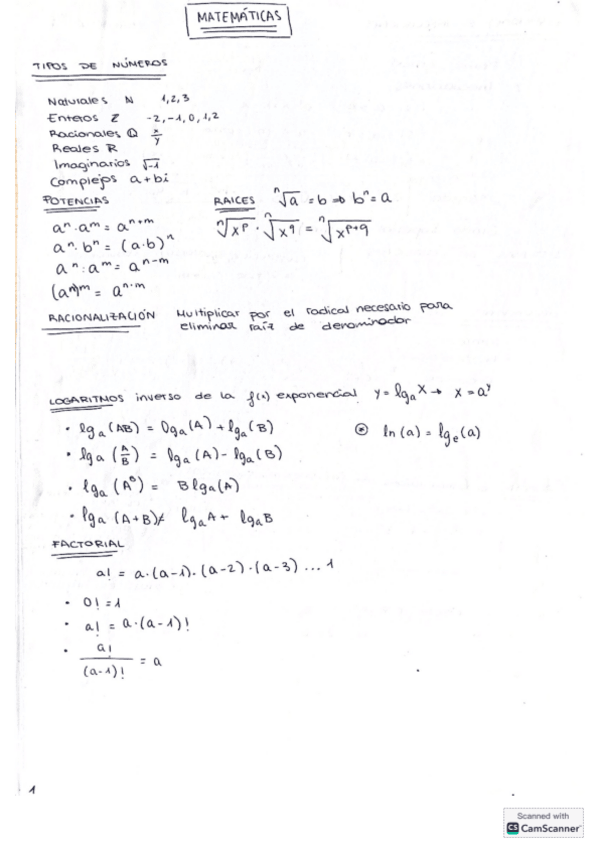 MATEMÁTICAS
TIPOS DE NÚMEROS
Naturales N 1,2,3
Enteros Z -2,-1,0,1,2
Racionales Q x/y
Reales R
Imaginarios √-1
Complejos a+bi
POTENCIAS
aⁿ·aᵐ = aⁿ⁺ᵐ
aⁿ·bⁿ = (a·b)ⁿ
aⁿ:aᵐ = aⁿ⁻ᵐ
(aⁿ)ᵐ = aⁿ·ᵐ
RAICES ⁿ√a = b ⇒ bⁿ = a
ⁿ√xᵖ · ⁿ√x^q = ⁿ√x^(p+q)
RACIONALIZACIÓN Multiplicar por el radical necesario para
eliminar raíz de denominador
LOGARITMOS inverso de la f(x) exponencial y = lgₐX → x = aʸ
• lgₐ(AB) = logₐ(A) + lgₐ(B)
• lgₐ(A/B) = lgₐ(A) - lgₐ(B)
• lgₐ(Aᴮ) = B lgₐ(A)
• lgₐ(A+B) ≠ lgₐA + lgₐB
⊙ ln(a) = lgₑ(a)
FACTORIAL
a! = a·(a-1)·(a-2)·(a-3) ... 1
• 0! = 1
• a! = a·(a-1)!
• a!/(a-1)! = a
1
Scanned with
CS CamScanner